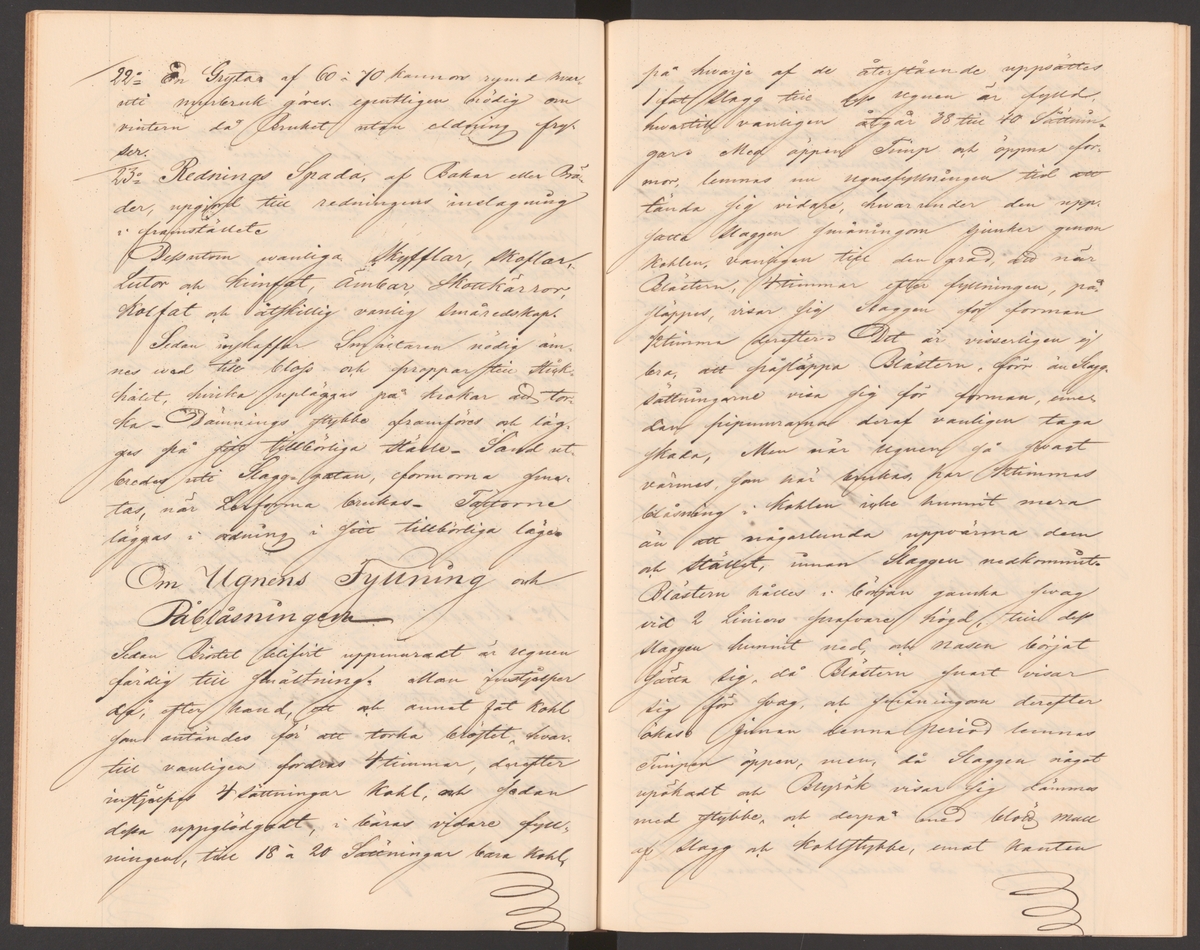 22o En Gryta af 60 à 70 kannors rymd hvar
uti murbruk göres egentligen nödig om
vintern då Bruket utan eldning fry-
ser.
23o Rednings Spada, af Bakar eller Brä-
der, upgjord till redningens inslagning
i framstället
Dessutom vanliga Skyfflar, Skoflar,
Lutor och kimfat, Ämbar, Skottkärror,
Kolfat och åtskillig vanlig småredskap.
Sedan inskaffar Smältaren nödig äm-
nes ved till bloss och proppar till Stick-
hålet, hvilka upläggas på krokar att tor-
ka – Dämnings stybbe framföres och läg-
ges på sitt tillbörliga ställe – Sand ut-
bredes uti Slagg-gatan, formorna
tas, när Lerforma brukas – Tackorne
läggas i ordning i sitt tillbörliga läge
Om Ugnens Fyllning och
Påblåsningen
Sedan Bröstet blifvit uppmuradt är ugnen
färdig till smältning. Man instjelper
då, efter hand, ett och annat fat kohl
som antändes för att torka bröstet, hvar-
till vanligen fordras 4 timmar, derefter
instjelpes 4 Sättningar Kohl, och sedan
dessa uppglödgadt, i bäras vidare fyll-
ningen, till 18 à 20 Sättningar bara Kohl,
på hvarje af de återstående uppsättes
1 fat Slagg till dess ugnen är fylld,
hvartill vanligen åtgår 38 till 40 Sättnin-
gar. Med öppen Timp och öppna for-
mor, lemnas nu ugnsfyllningen tid att
tända sig vidare, hvarunder den upp-
satta Slaggen småningom sjunker genom
Kohlen, vanligen till den grad, att när
Blästern, 4 timmar efter fyllningen, på-
släppes, visar sig Slaggen för forman
1 timma derefter. Det är visserligen ej
bra, att påsläppa Blästern, förr än Slagg-
sättningarne visa sig för forman, eme-
dan pipmurarna deraf vanligen taga
skada, Men när ugnen så svagt
värmes, som här brukas, har 1 timmas
blåsning i kohlen icke hunnit mera
än att någorlunda uppvärma dem
och stället, innan Slaggen nedkommit.
Blästern hålles i början ganska svag
vid 2 Liniers profvare högd, till dess
Slaggen hunnit ned, och nasen börjat
sätta sig, då Blästern snart visar
sig för svag, och småningom derefter
ökas. Innan denna period lemnas
Timpen öppen, men, då Slaggen något
upökadt och Blyrök visar sig dämmas
med stybbe, och derpå med blött mull
af Slagg och kohlstybbe, emot kanten